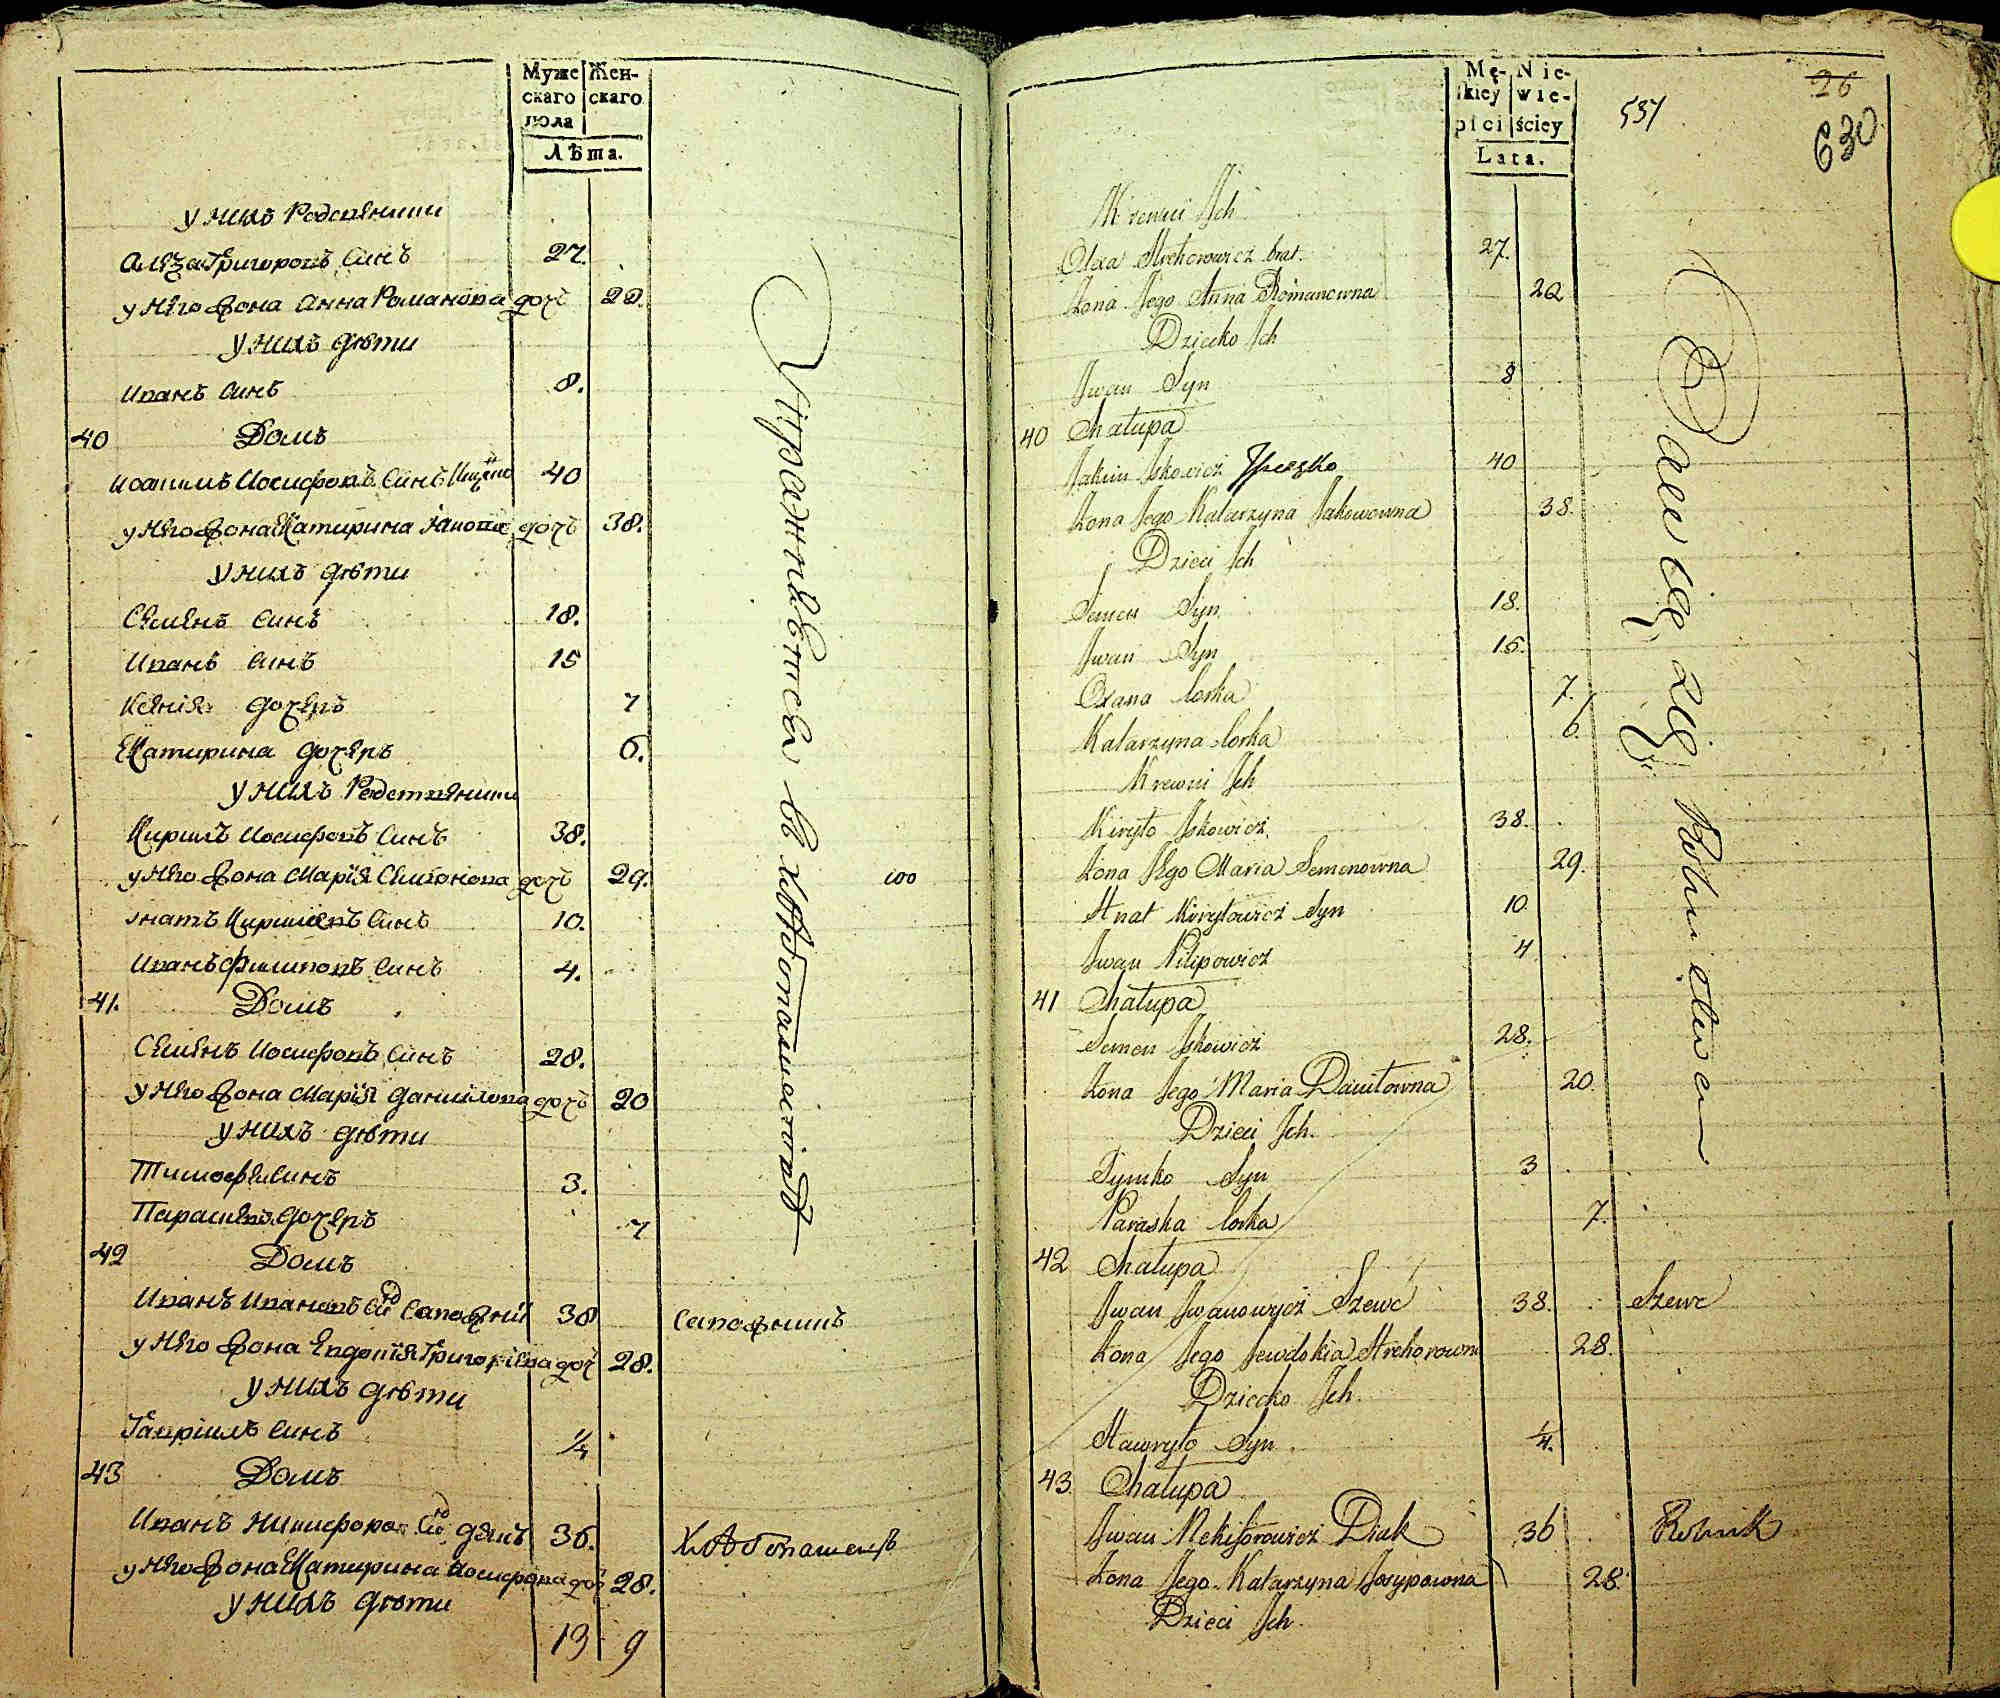 Муже Жен-
скаго скаго
пола
Лѣта.
у нихъ Родственники
Алеѯа Григоровъ Синъ 27.
у Него Жона Анна Романова дочь 22.
у нихъ дѣти
Иванъ Синъ 8.
40 Домъ
Иоакимъ Иосифовъ Синъ 40
у Него Жона Екатирина дочь 38.
у нихъ дѣти
Семенъ Синъ 18.
Иванъ Синъ 15
Ксения дочерь 7
Екатирина дочерь 6.
у нихъ Родственники
Кирилъ Иосифовъ Синъ 38.
у Него Жона Мария Семионова дочь 29.
Игнатъ Кириловъ Синъ 10.
Иванъ Филиповъ Синъ 4.
41. Домъ
Семенъ Иосифовъ Синъ 28.
у Него Жона Мария Данилова дочь 20
у нихъ дѣти
Тимофей Синъ 3.
Параскева дочерь 7
42 Домъ
Иванъ Ивановъ 38
у Него Жона Евдокия Григориева дочь 28.
у нихъ дѣти
Гавриилъ Синъ 1/4
43 Домъ
Иванъ Никифоровъ дякъ 36.
у Него Жона Екатирина Иосифова дочь 28.
у нихъ дѣти
13 9
Упражняется в хлебопашестве
100
Сапожникъ
Хлебопашецъ
Mę- Nie-
skiey wie-
płci ściey
Lata.
537
26
630
Krewni Ich
Olexa Hrehorowicz brat. 27.
Żona Jego Anna Romanowna 22
Dziecko Ich
Iwan Syn 8
40 Chałupa
Jakim Iskowicz 40
Żona Jego Katarzyna Jakowowna 38.
Dzieci Ich
Semen Syn 18.
Iwan Syn 15.
Oxana Corka 7.
Katarzyna Corka 6.
Krewni Ich
Kiryło Iskowicz 38.
Żona Jego Maria Semenowna 29.
Hnat Kiryłowicz Syn 10.
Iwan Pilipowicz 4
41 Chałupa
Semen Iskowicz 28.
Żona Jego Maria Daniłowna 20.
Dzieci Ich.
Tymko Syn 3
Paraska Corka 7.
42 Chałupa
Iwan Iwanowycz Szewc 38. Szewc
Żona Jego Jewdokia Hrehorowna 28.
Dziecko Ich.
Hawryło Syn 1/4.
43. Chałupa
Iwan Nekiforowicz Diak 36 Rolnik
Żona Jego Katarzyna Josypowna 28.
Dzieci Ich.
Bawią się Rolnictwem